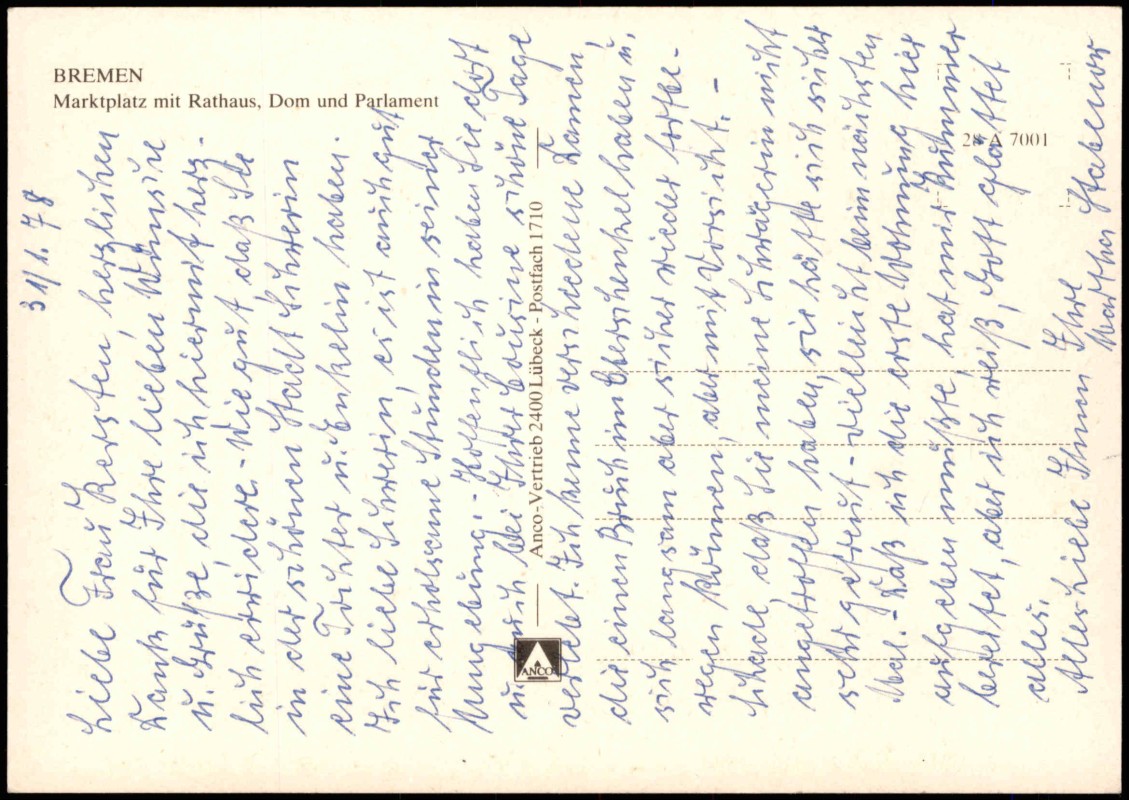 BREMEN
Marktplatz mit Rathaus, Dom und Parlament
28 A 7001
Anco-Vertrieb 2400 Lübeck - Postfach 1710
ANCO
31/1. 78
Liebe Frau Kersten, herzlichen
Dank für Ihre lieben Wünsche
u. Grüße, die ich hiermit herz-
lich erwidere. Wie gut daß Sie
in der schönen Stadt Schwerin
eine Tochter u. Enkelin haben.
Ich liebe Schwerin, es ist auch gut
für erholsame Stunden in seiner
Umgebung. - Hoffentlich haben Sie dort
u. auch bei Ihrer Cousine schöne Tage
verlebt. Ich kenne verschiedene Damen,
die einen Bruch im Oberschenkel haben u.
sich langsam aber sicher wieder fortbe-
wegen können, aber mit Vorsicht. -
Schade daß Sie meine Schwägerin nicht
angetroffen haben, sie hätte sich sicher
sehr gefreut - vielleicht beim nächsten
Mal. - Daß ich die erste Wohnung hier
aufgeben mußte, hat mir Kummer
bereitet, aber ich weiß, Gott glättet
alles.
Alles Liebe Ihnen Ihre
Martha